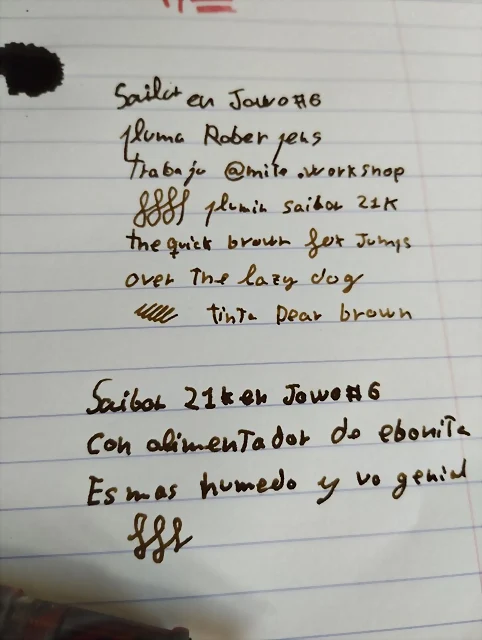 Sailot en Jowo #6
pluma Rober pens
Trabajo @milo.workshop
plumin saibor 21K
the quick brown fox Jumps
over The lazy dog
tinTa Pear brown
Saibor 21k en Jowo #6
Con alimenTador de eboniTa
Es mas humedo y va genial